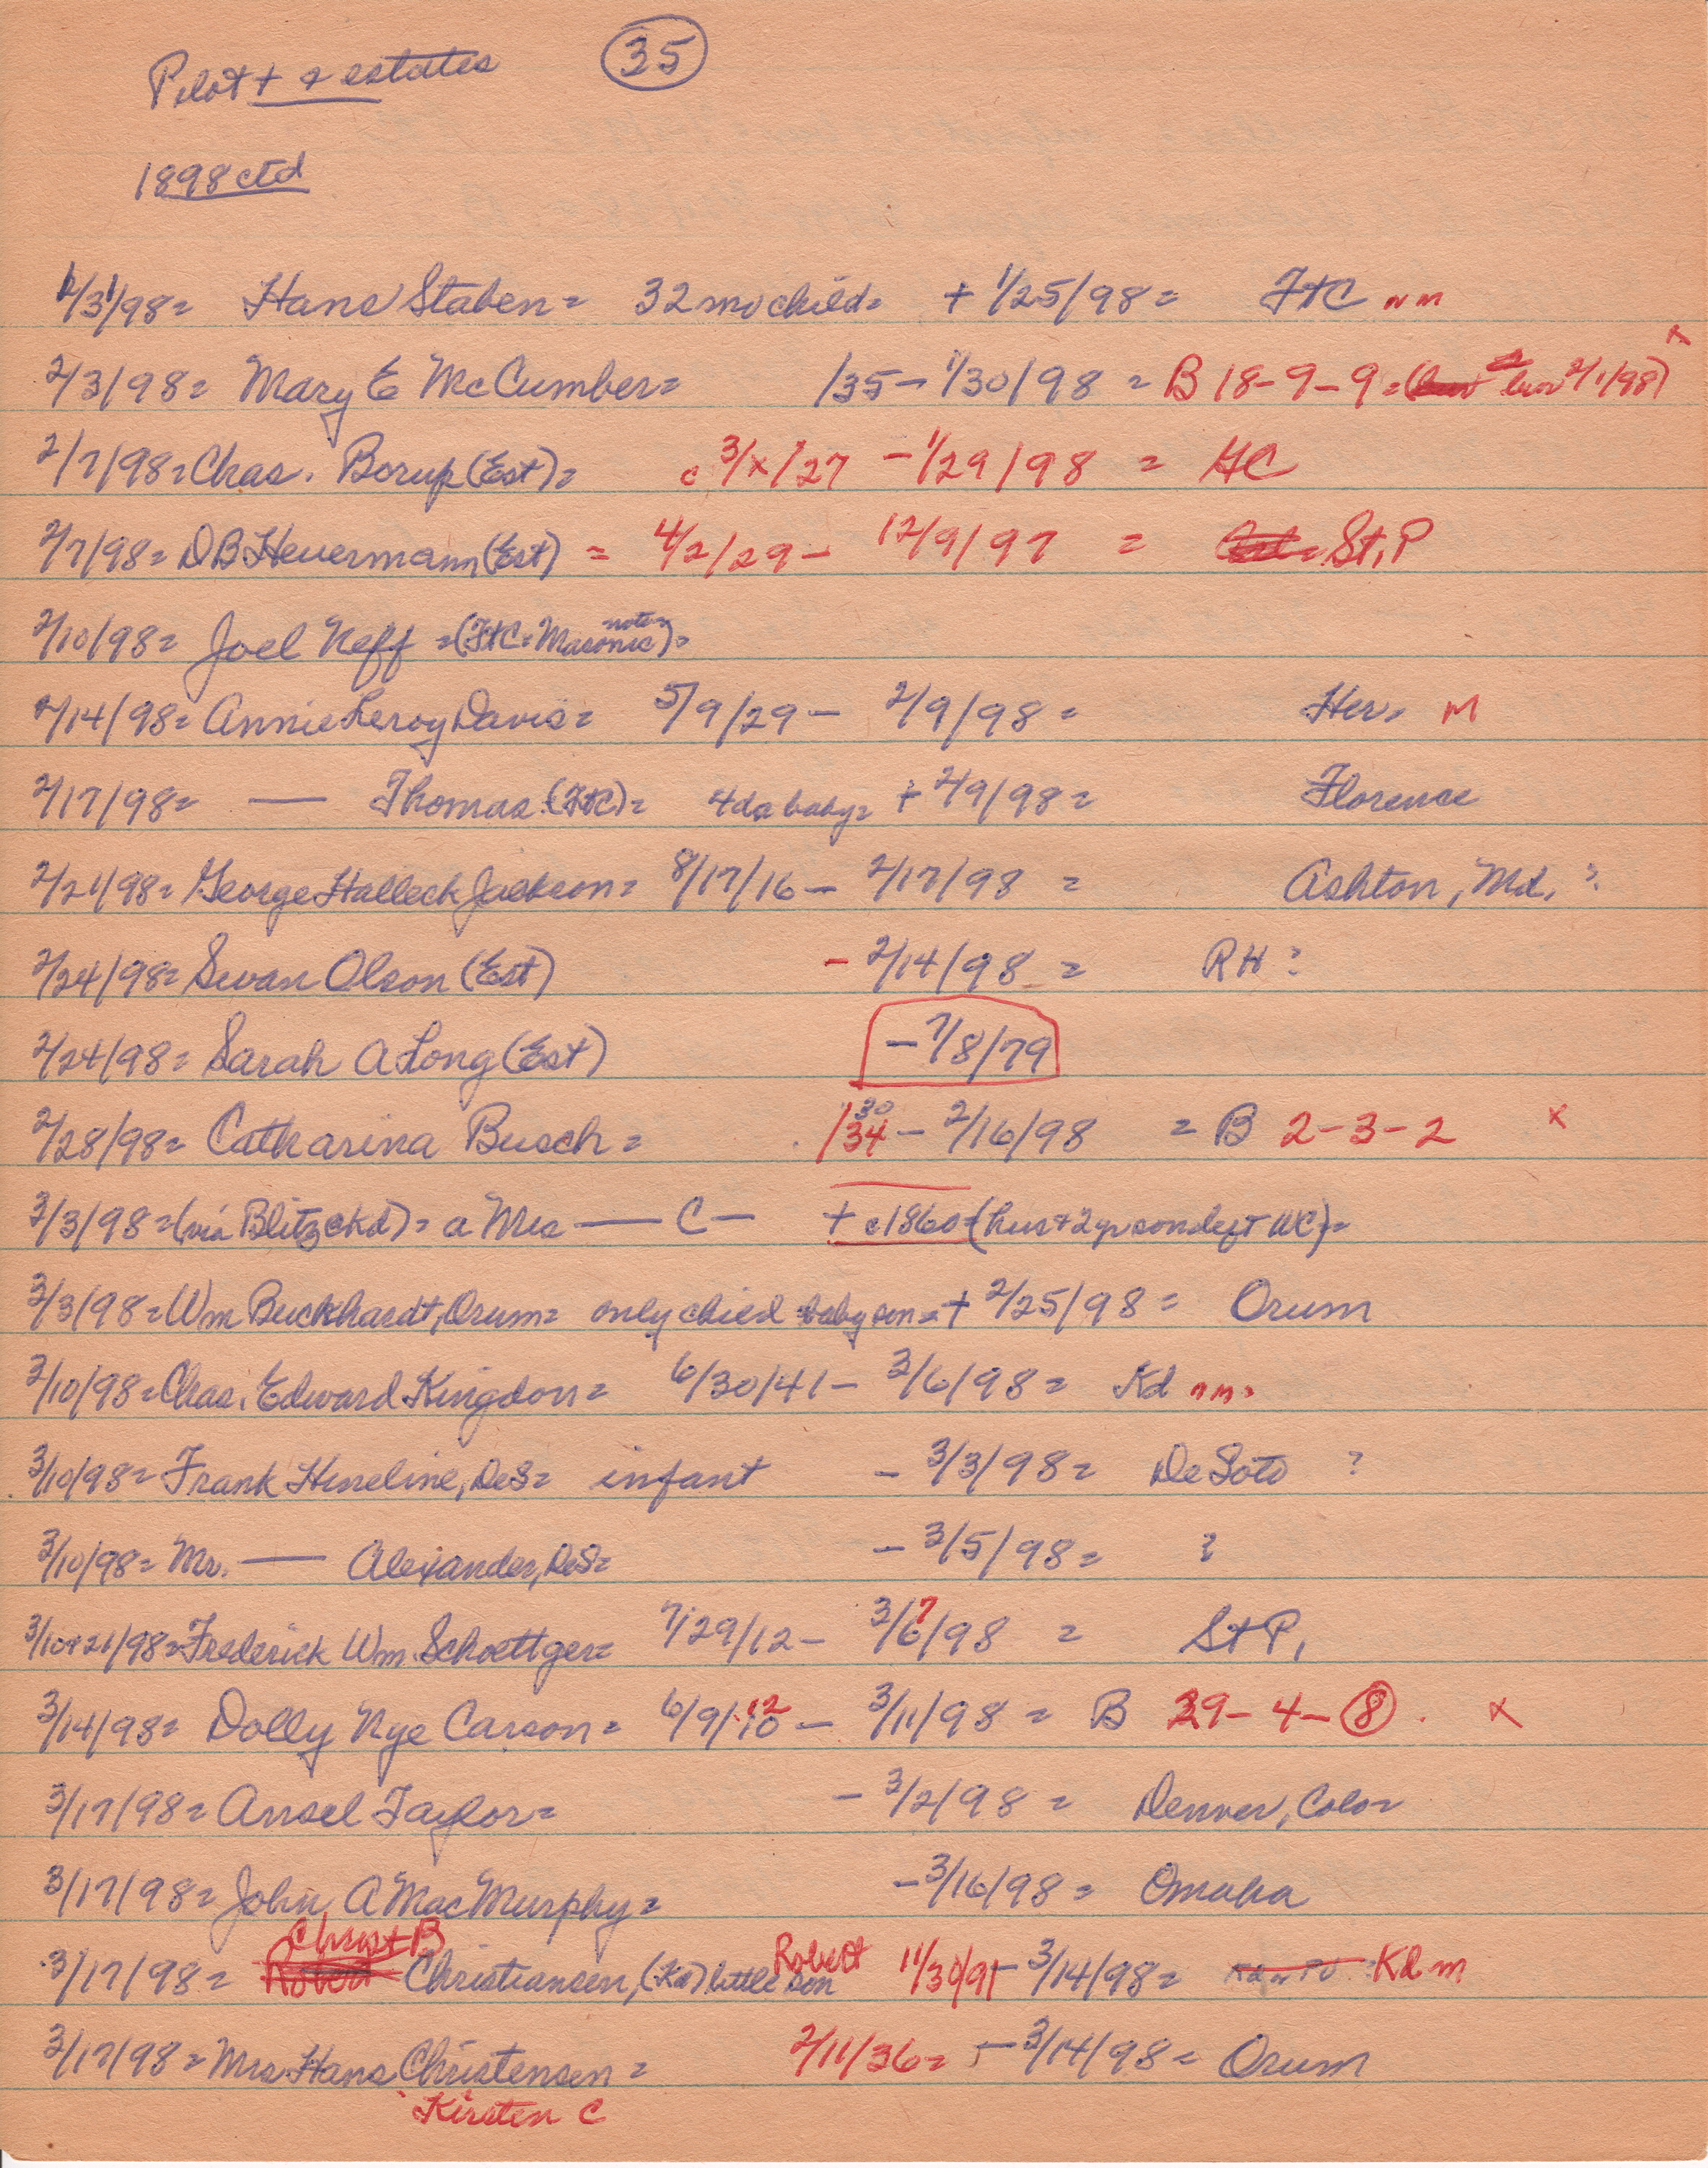 Pilot + & estates 35
1898 ctd
1/31/98= Hans Staben= 32 mo child= + 1/25/98= FtC nm
2/3/98= Mary E McCumber= /35 - 1/30/98 = B 18-9-9=( bur 2/1/98) x
2/7/98= Chas. Borup (Est)= c 3/x/27 - 1/29/98 = HC
2/7/98= DB Heuermann (Est) = 4/2/29 - 12/9/97 = St. P
2/10/98= Joel Neff =(FtC= Masonic note)=
2/14/98= Annie Leroy Davis= 5/9/29 - 2/9/98= Her= M
2/17/98= — Thomas (FtC)= 4 da baby= + 2/9/98= Florence
2/21/98= George Halleck Jackson= 8/17/16 - 2/17/98 = Ashton, Md. ?
2/24/98= Swan Olson (Est) - 2/14/98 = RH ?
2/24/98= Sarah A Long (Est) - 7/8/79
2/28/98= Catharina Busch= /34 30 - 2/16/98 = B 2-3-2 x
3/3/98=(via Blitz c Kd)= a Mrs — C — + c1860=(hus + 2 yr son left WC)=
3/3/98= Wm Buckhardt, Orum= only child baby son= + 2/25/98= Orum
3/10/98= Chas. Edward Kingdon= 6/30/41 - 3/6/98= Kd nm=
3/10/98= Frank Hineline, DeS= infant - 3/3/98= DeSoto ?
3/10/98= Mr. — Alexander, DeS= - 3/5/98= ?
3/10+21/98= Frederick Wm. Schoettger= 7/29/12 - 3/6/98 7 = St P.
3/14/98= Dolly Nye Carson= 6/9/10 12 - 3/11/98 = B 29-4-8. x
3/17/98= Ansel Taylor= - 3/2/98 = Denver, Colo=
3/17/98= John A MacMurphy= - 3/16/98= Omaha
Christ B
3/17/98= Robert Christiansen, (Kd) little son Robert 11/30/91 - 3/14/98= Kd m
3/17/98= Mrs Hans Christensen= 2/11/36= - 3/14/98= Orum
Kirsten C